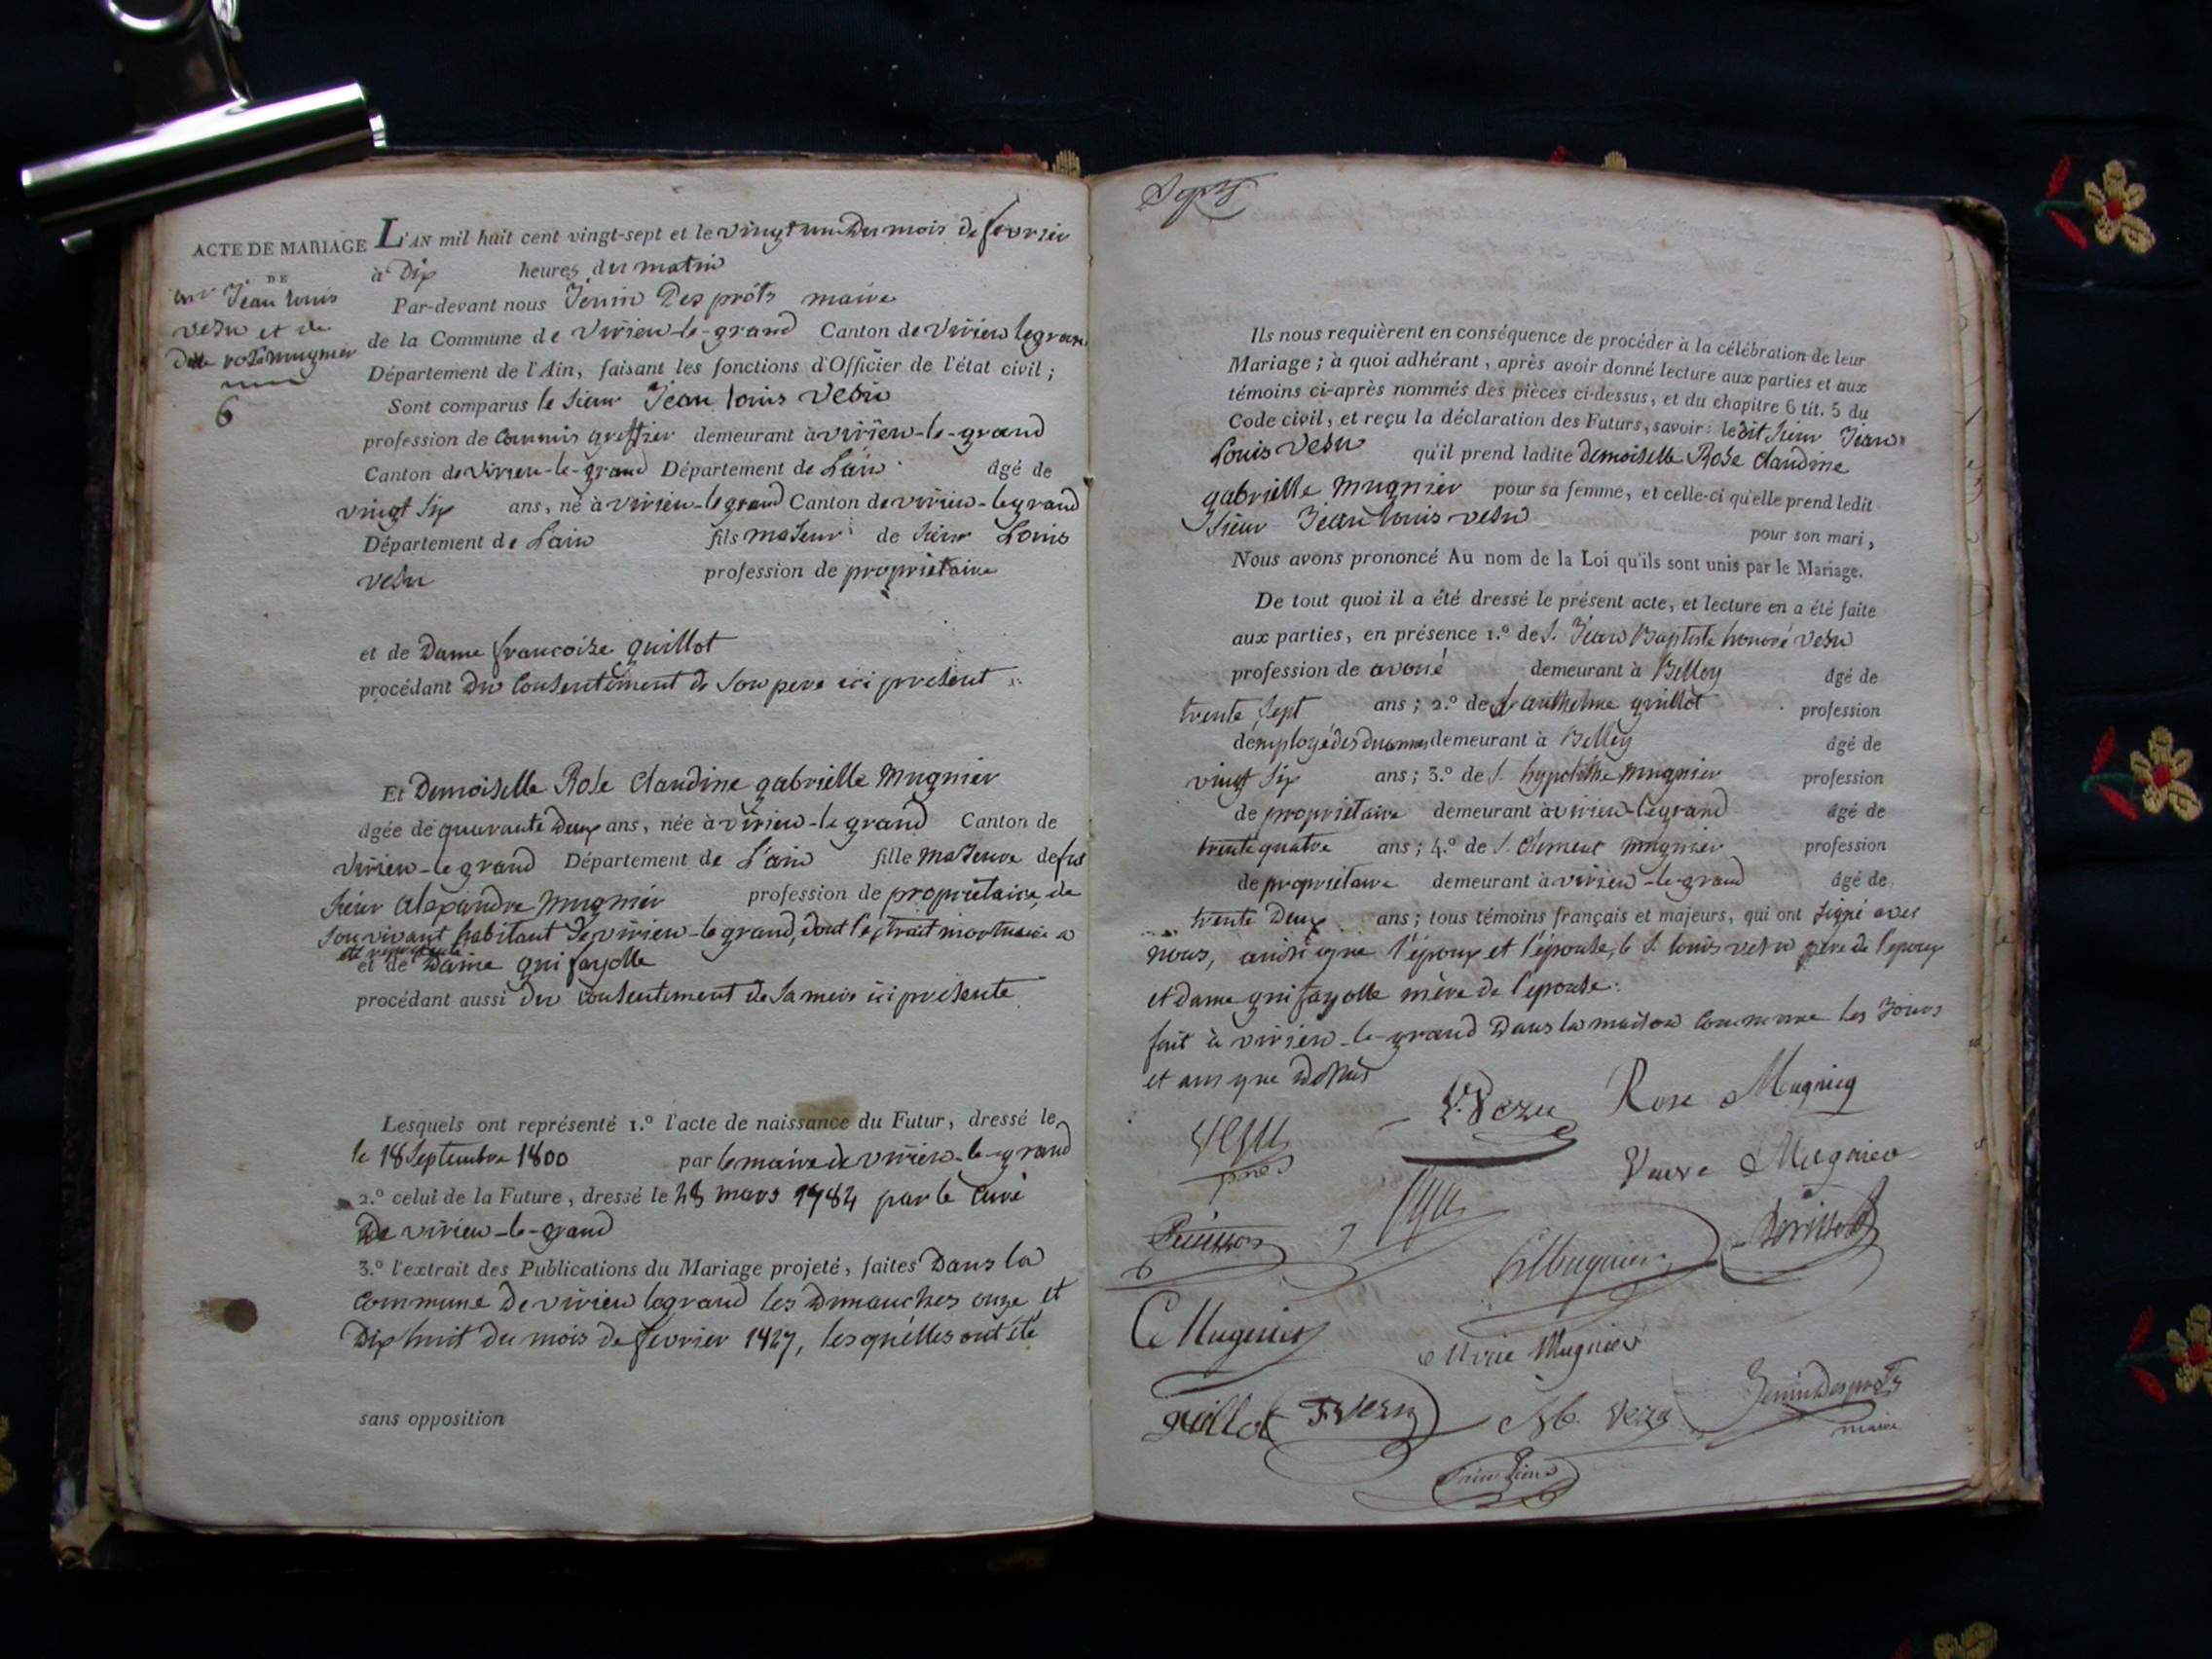 ACTE DE MARIAGE
DE
Jean Louis
vesu et de
Dlle rose mugnier
6
L'AN mil huit cent vingt-sept et le vingt un Du mois de fevrier
à Dix heures du matin
Par-devant nous Jenin Desprôts maire
de la Commune de Virieu-le-grand Canton de Virieu legrand
Département de l'Ain, faisant les fonctions d'Officier de l'état civil ;
Sont comparus le sieur Jean Louis Vesu
profession de Commis greffier demeurant à virieu-le-grand
Canton de virieu-le-grand Département de L'ain âgé de
vingt six ans, né à virieu-legrand Canton de virieu-legrand
Département de Lain fils majeur de sieur Louis
vesu profession de propriétaire
et de Dame francoise guillot
procédant Du Consentement de son pere ici présent
Et Demoiselle Rose Claudine gabrielle Mugnier
âgée de quarante Deux ans, née à virieu-le grand Canton de
virieu-le grand Département de L'ain fille majeure de feu
sieur Alexandre mugnier profession de propriétaire, de
son vivant habitant de virieu-le grand, dont l'extrait mortuaire a
été
et de Dame gui fayolle
procédant aussi du consentement de sa mere ici présente
Lesquels ont représenté 1.º l'acte de naissance du Futur, dressé le
le 18 Septembre 1800 par le maire de virieu-le-grand
2.º celui de la Future, dressé le 28 mars 1784 par le Curé
De virieu-le-grand
3.º l'extrait des Publications du Mariage projeté, faites Dans la
Commune De virieu legrand les Dimanches onze et
Dix huit du mois de fevrier 1827, lesquelles ont été
sans opposition
Ils nous requièrent en conséquence de procéder à la célébration de leur
Mariage ; à quoi adhérant, après avoir donné lecture aux parties et aux
témoins ci-après nommés des pièces ci-dessus, et du chapitre 6 tit. 5 du
Code civil, et reçu la déclaration des Futurs, savoir : ledit sieur Jean
Louis Vesu qu'il prend ladite demoiselle Rose Claudine
gabrielle Mugnier pour sa femme, et celle-ci qu'elle prend ledit
sieur Jean Louis vesu
pour son mari,
Nous avons prononcé Au nom de la Loi qu'ils sont unis par le Mariage.
De tout quoi il a été dressé le présent acte, et lecture en a été faite
aux parties, en présence 1.º de S. Jean Baptiste honoré vesu
profession de avoué demeurant à Belley âgé de
trente sept ans ; 2.º de S. anthelme guillot profession
d'employé des Douanes demeurant à Belley âgé de
vingt six ans ; 3.º de S. hypolithe Mugnier profession
de propriétaire demeurant à virieu-legrand âgé de
trente quatre ans ; 4.º de S. Clement mugnier profession
de propriétaire demeurant à virieu-le-grand âgé de
trente Deux ans ; tous témoins français et majeurs, qui ont signé avec
nous, ainsi que l'époux et l'épouse, le S. louis vesu père de l'epoux
et dame gui fayolle mère de l'epouse.
fait à virieu-le-grand Dans la maison Commune les Jours
et an que Dessus
L. Vezu Rose Mugnier
Vesu père
Veuve Mugnier
h Mugnier
C Mugnier
Marie Mugnier
guillot Vesu Vezu Jenin Desprots
maire